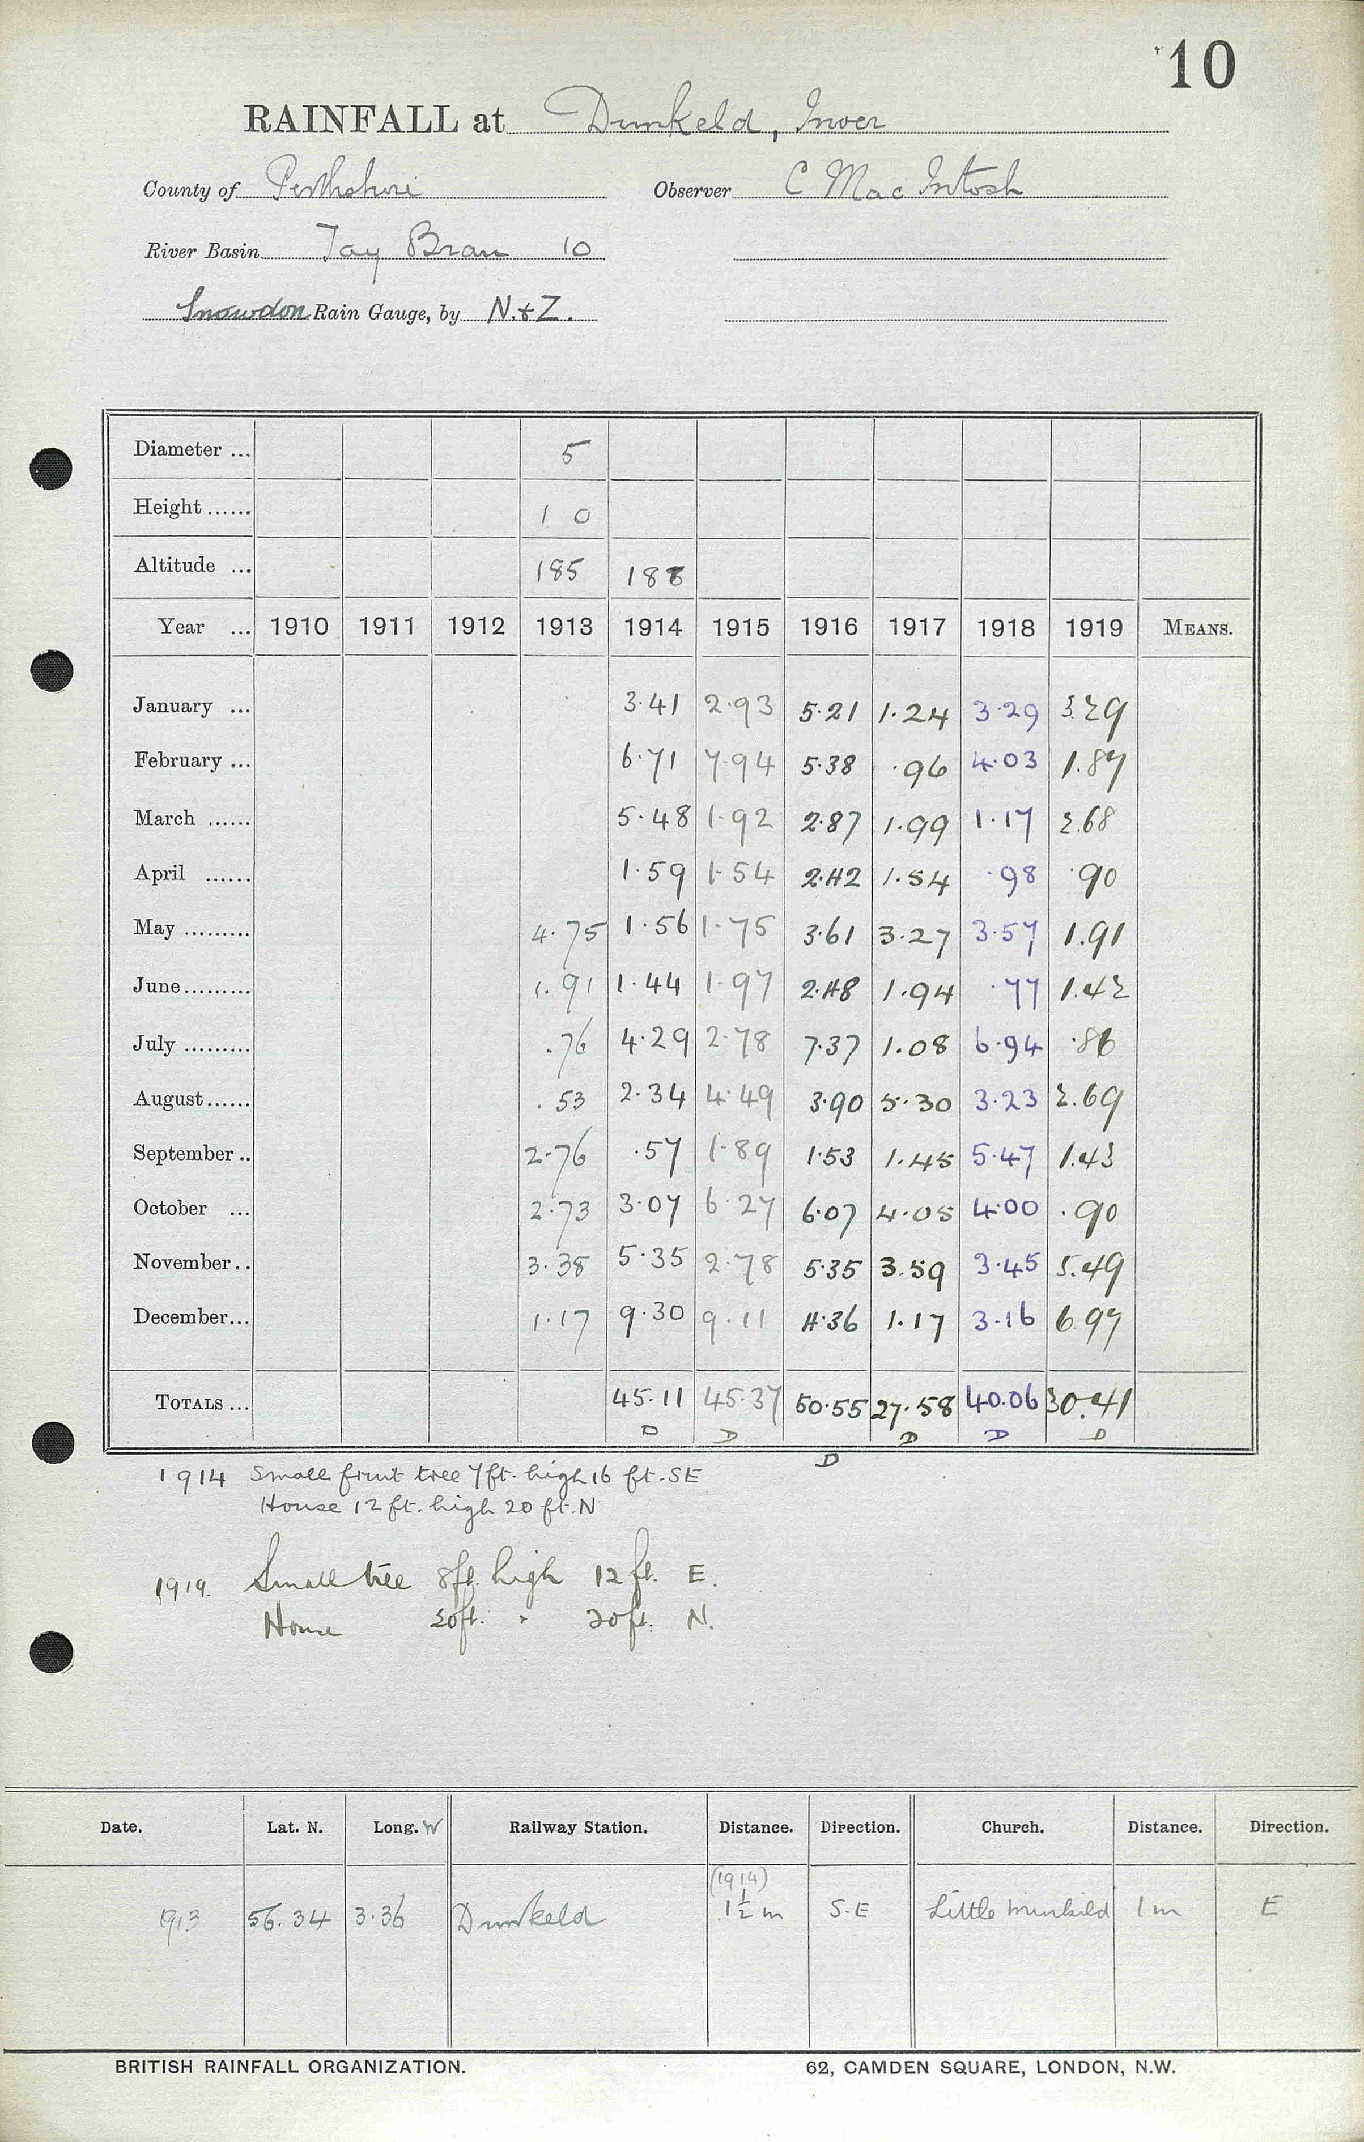 10
RAINFALL at Dunkeld, Inver
County of Perthshire Observer C MacIntosh
River Basin Tay Bran 10
Snowdon Rain Gauge, by N.&Z.
Diameter ... 5
Height ...... 1 0
Altitude ... 185 188
Year ... 1910 1911 1912 1913 1914 1915 1916 1917 1918 1919 MEANS.
January ... 3.41 2.93 5.21 1.24 3.29 3.29
February ... 6.71 7.94 5.38 .96 4.03 1.87
March ...... 5.48 1.92 2.87 1.99 1.17 2.68
April ...... 1.59 1.54 2.42 1.54 .98 .90
May ......... 4.75 1.56 1.75 3.61 3.27 3.57 1.91
June......... 1.91 1.44 1.97 2.48 1.94 .77 1.42
July ......... .76 4.29 2.78 7.37 1.08 6.94 .86
August...... .53 2.34 4.49 3.90 5.30 3.23 2.69
September .. 2.76 .57 1.89 1.53 1.45 5.47 1.43
October ... 2.73 3.07 6.27 6.07 4.05 4.00 .90
November.. 3.38 5.35 2.78 5.35 3.59 3.45 5.49
December... 1.17 9.30 9.11 4.36 1.17 3.16 6.97
TOTALS ... 45.11 45.37 50.55 27.58 40.06 30.41
D D D D D D
1914 Small fruit tree 7ft. high 16 ft. SE
House 12 ft. high 20 ft. N
1919 Small tree 8ft. high 12 ft. E.
House 20ft. " 20ft. N.
Date. Lat. N. Long. W Railway Station. Distance. Direction. Church. Distance. Direction.
(1914)
1913 56.34 3.36 Dunkeld 1½ m S.E Little 1m E
BRITISH RAINFALL ORGANIZATION. 62, CAMDEN SQUARE, LONDON, N.W.